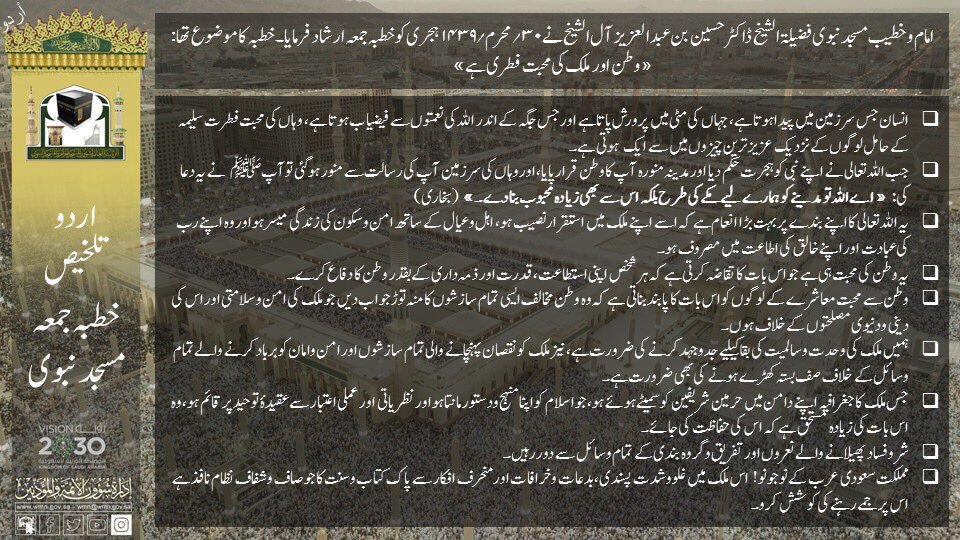 اُردو
امام و خطیب مسجد نبوی فضیلۃ الشیخ ڈاکٹر حسین بن عبد العزیز آل الشیخ نے ۳۰؍ محرم؍ ۱۴۳۹ ہجری کو خطبہ جمعہ ارشاد فرمایا۔ خطبہ کا موضوع تھا:
«وطن اور ملک کی محبت فطری ہے»
انسان جس سرزمین میں پیدا ہوتا ہے، جہاں کی مٹی میں پرورش پاتا ہے اور جس جگہ کے اندر اللہ کی نعمتوں سے فیضیاب ہوتا ہے، وہاں کی محبت فطرت سلیمہ
کے حامل لوگوں کے نزدیک عزیز ترین چیزوں میں سے ایک ہوتی ہے۔
جب اللہ تعالی نے اپنے نبی کو ہجرت کا حکم دیا اور مدینہ منورہ آپ کا وطن قرار پایا، اور وہاں کی سرزمین آپ کی رسالت سے منور ہو گئی تو آپ ﷺ نے یہ دعا
کی: «اے اللہ تو مدینے کو ہمارے لیے مکے کی طرح بلکہ اس سے بھی زیادہ محبوب بنا دے۔» (بخاری)
یہ اللہ تعالی کا اپنے بندے پر بہت بڑا انعام ہے کہ اسے اپنے ملک میں استقرار نصیب ہو، اہل و عیال کے ساتھ امن و سکون کی زندگی میسر ہو اور وہ اپنے رب
کی عبادت اور اپنے خالق کی اطاعت میں مصروف ہو۔
یہ وطن کی محبت ہی ہے جو اس بات کا تقاضہ کرتی ہے کہ ہر شخص اپنی استطاعت، قدرت اور ذمہ داری کے بقدر وطن کا دفاع کرے۔
وطن سے محبت معاشرے کے لوگوں کو اس بات کا پابند بناتی ہے کہ وہ وطن مخالف ایسی تمام سازشوں کا منہ توڑ جواب دیں جو ملک کی امن و سلامتی اور اس کی
دینی و دنیوی مصلحتوں کے خلاف ہوں۔
ہمیں ملک کی وحدت و سالمیت کی بقا کیلیے جدوجہد کرنے کی ضرورت ہے، نیز ملک کو نقصان پہنچانے والی تمام سازشوں اور امن وامان کو برباد کرنے والے تمام
وسائل کے خلاف صف بستہ کھڑے ہونے کی بھی ضرورت ہے۔
جس ملک کا جغرافیہ اپنے دامن میں حرمین شریفین کو سمیٹے ہوئے ہو، جو اسلام کو اپنا منہج و دستور مانتا ہو اور نظریاتی اور عملی اعتبار سے عقیدۂ توحید پر قائم ہو، وہ
اس بات کی زیادہ مستحق ہے کہ اس کی حفاظت کی جائے۔
شر و فساد پھیلانے والے نعروں اور تفریق و گروہ بندی کے تمام وسائل سے دور رہیں۔
مملکت سعودی عرب کے نوجونو! اس ملک میں غلو و شدت پسندی، بدعات و خرافات اور منحرف افکار سے پاک کتاب و سنت کا جو صاف و شفاف نظام نافذ ہے
اس پر جمے رہنے کی کوشش کرو۔
اردو
تلخیص
خطبہ جمعہ
مسجد نبوی
VISION رؤية
2030
المملكة العربية السعودية
KINGDOM OF SAUDI ARABIA
إدارة شؤون الأئمة والمؤذنين
www.wmn.gov.sa - wmn@wmn.gov.sa